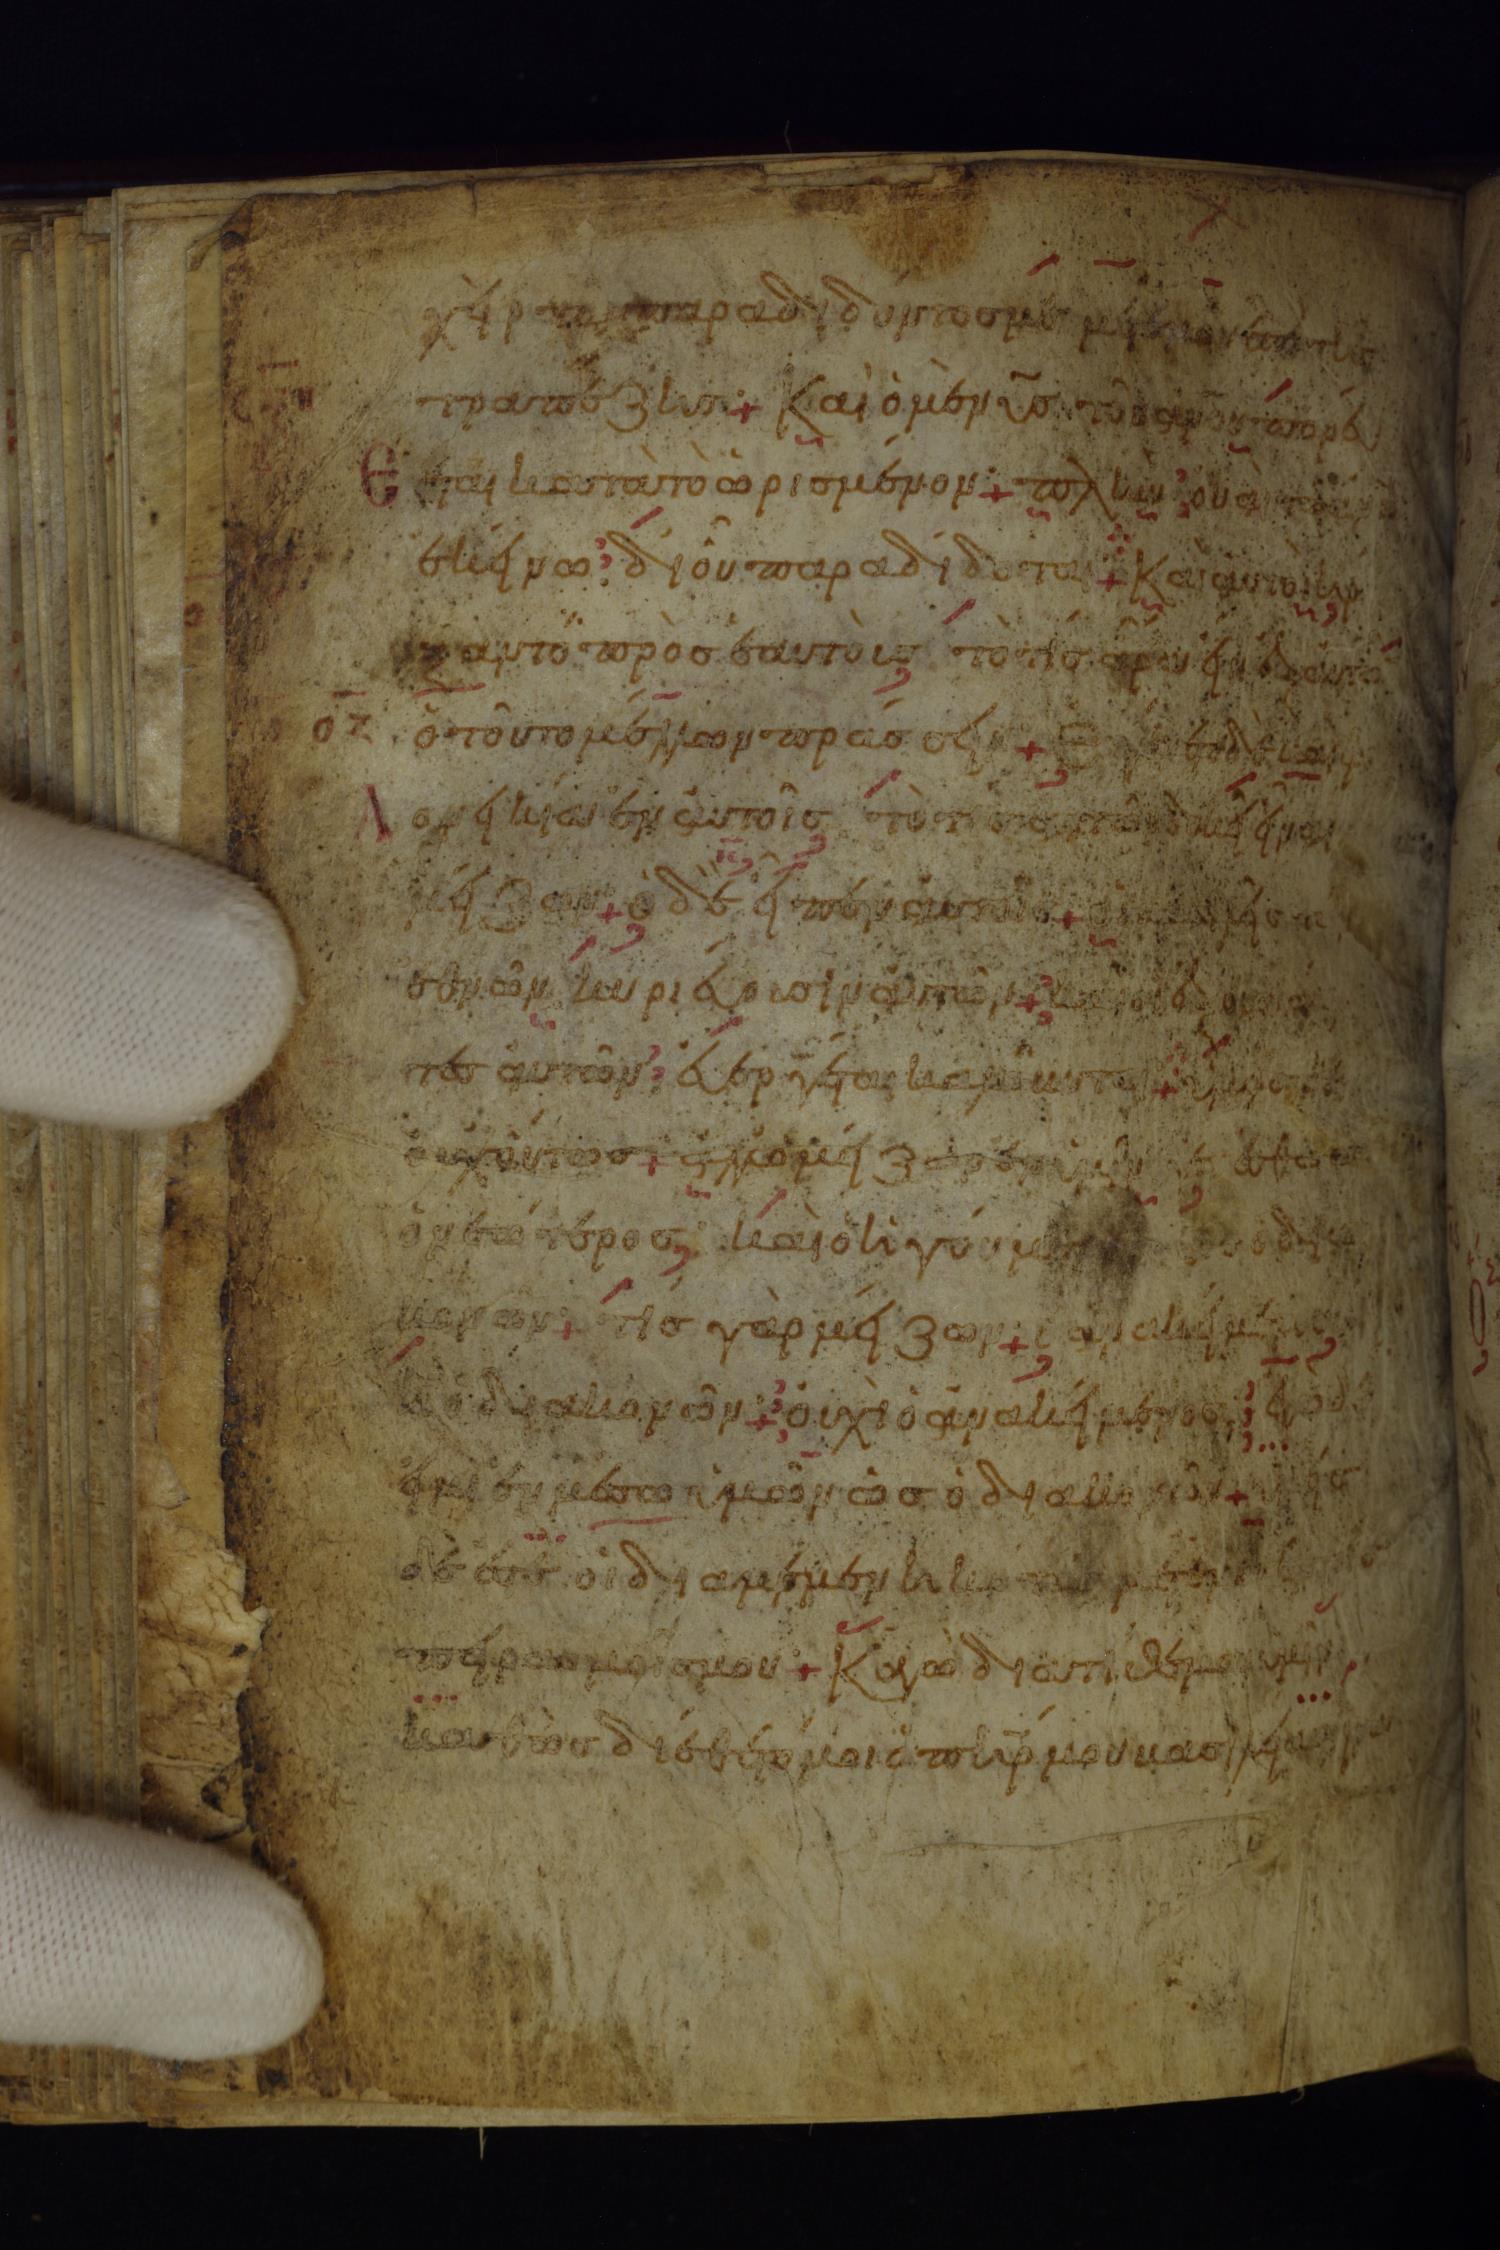 χεὶρ τοῦ παραδιδόντος με μετ' ἐμοῦ ἐπὶ τῆς
τραπέζης + Καὶ ὁ μὲν υ̅ς̅ τοῦ α̅ν̅ο̅υ̅ πορεύ
ε ται κατὰ τὸ ὡρισμένον + πλὴν οὐαὶ τῷ ἀνῶ
ἐκείνω δι οὗ παραδίδοται + Καὶ αὐτοὶ ἤρ
ξαντο πρὸς ἑαυτοὺς τὸ τίς ἄρα εἴη ἐξ αὐτῶ
οζ ὁ τοῦτο μέλλων πράσσειν + Ἐγένετο δὲ καὶ
φι λονεικία ἐν αὐτοῖς τὸ τίς αὐτῶν δοκεῖ εἶναι
μείζων + ὁ δὲ εἶπεν αὐτοῖς + οἱ βασιλεῖς τῶν
ἐθνῶν κυριεύουσιν αὐτῶν + καὶ οἱ ἐξουσιάζον
τες αὐτῶν εὐεργέται καλοῦνται + ὑμεῖς δὲ
οὐχ οὕτως + ἀλλ ὁ μείζων ἐν ὑμῖν γενέσθω ὡς
ὁ νεώτερος καὶ ὁ ἡγούμενος ὡς ὁ δια
κονῶν + τίς γὰρ μείζων + ὁ ἀνακείμενος
ἢ ὁ διακονῶν + οὐχὶ ὁ ἀνακείμενος ἐγὼ δὲ
εἰμι ἐν μέσω ὑμῶν ὡς ὁ διακονῶν + ὑμεῖς
δὲ ἐστε οἱ διαμεμενηκότες μετ' ἐμοῦ ἐν τοῖς
πειρασμοῖς μου + Κἀγὼ διατίθεμαι ὑμῖν
καθὼς διέθετό μοι ὁ π̅η̅ρ̅ μου βασιλείαν